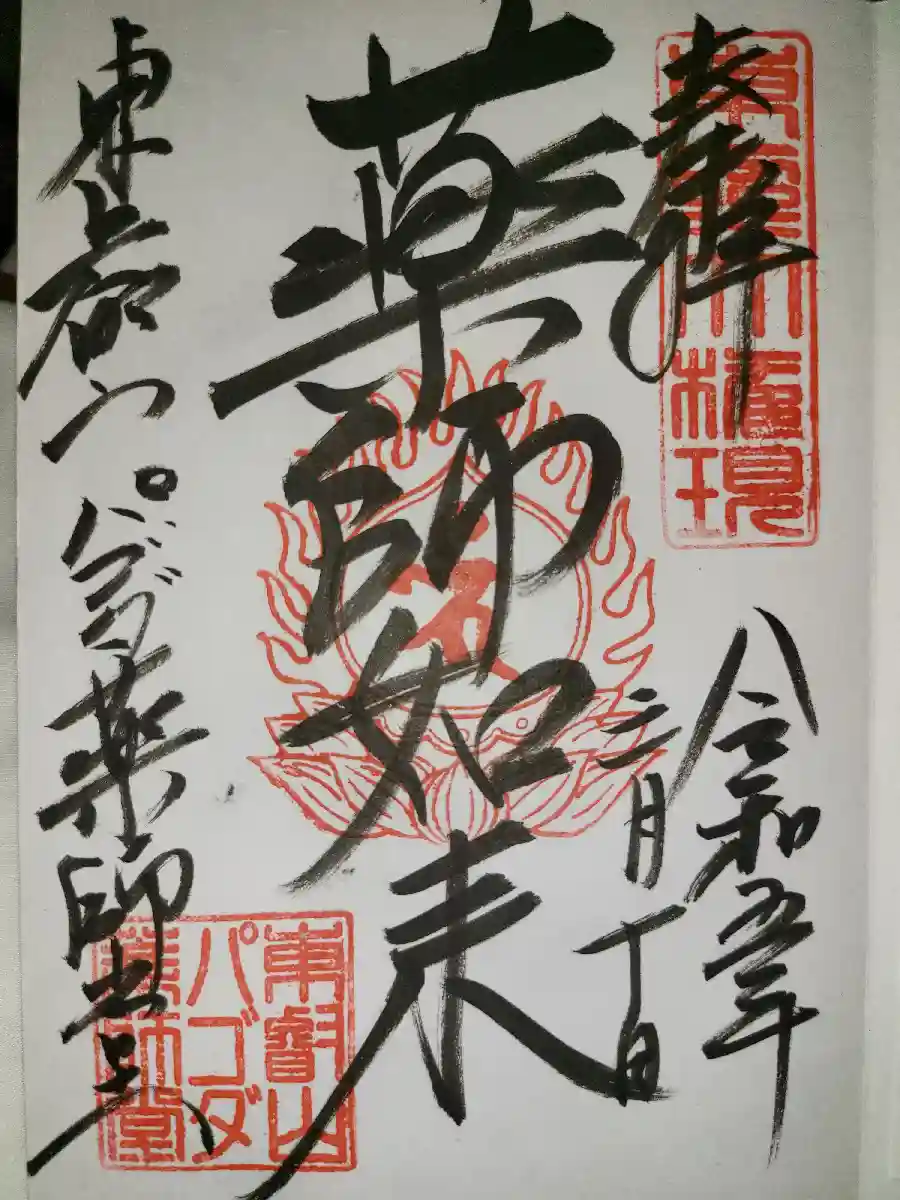 奉拝
東照大權現
令和五年
三月
薬師如来
東叡山パゴダ薬師堂
東叡山
パゴダ
薬師堂